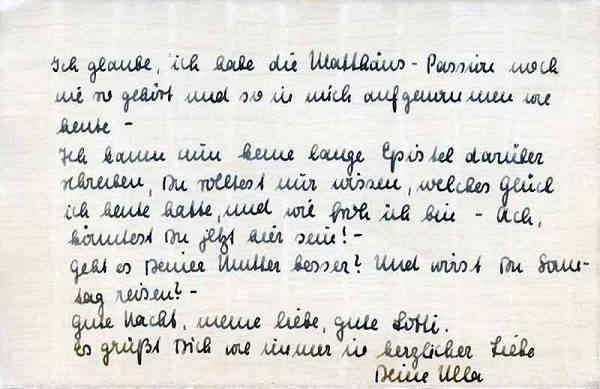 Ich glaube, ich habe die Matthäus-Passion noch
nie so gehört und so in mich aufgenommen wie
heute -
Ich kann nun keine lange Epistel darüber
schreiben, Du solltest nur wissen, welches Glück
ich heute hatte, und wie froh ich bin - Ach,
könntest Du jetzt hier sein! -
Geht es Deiner Mutter besser? Und wirst Du Sonn-
tag reisen? -
Gute Nacht, meine liebe, gute Lotti.
Es grüßt Dich wie immer in herzlicher Liebe
Deine Ulla